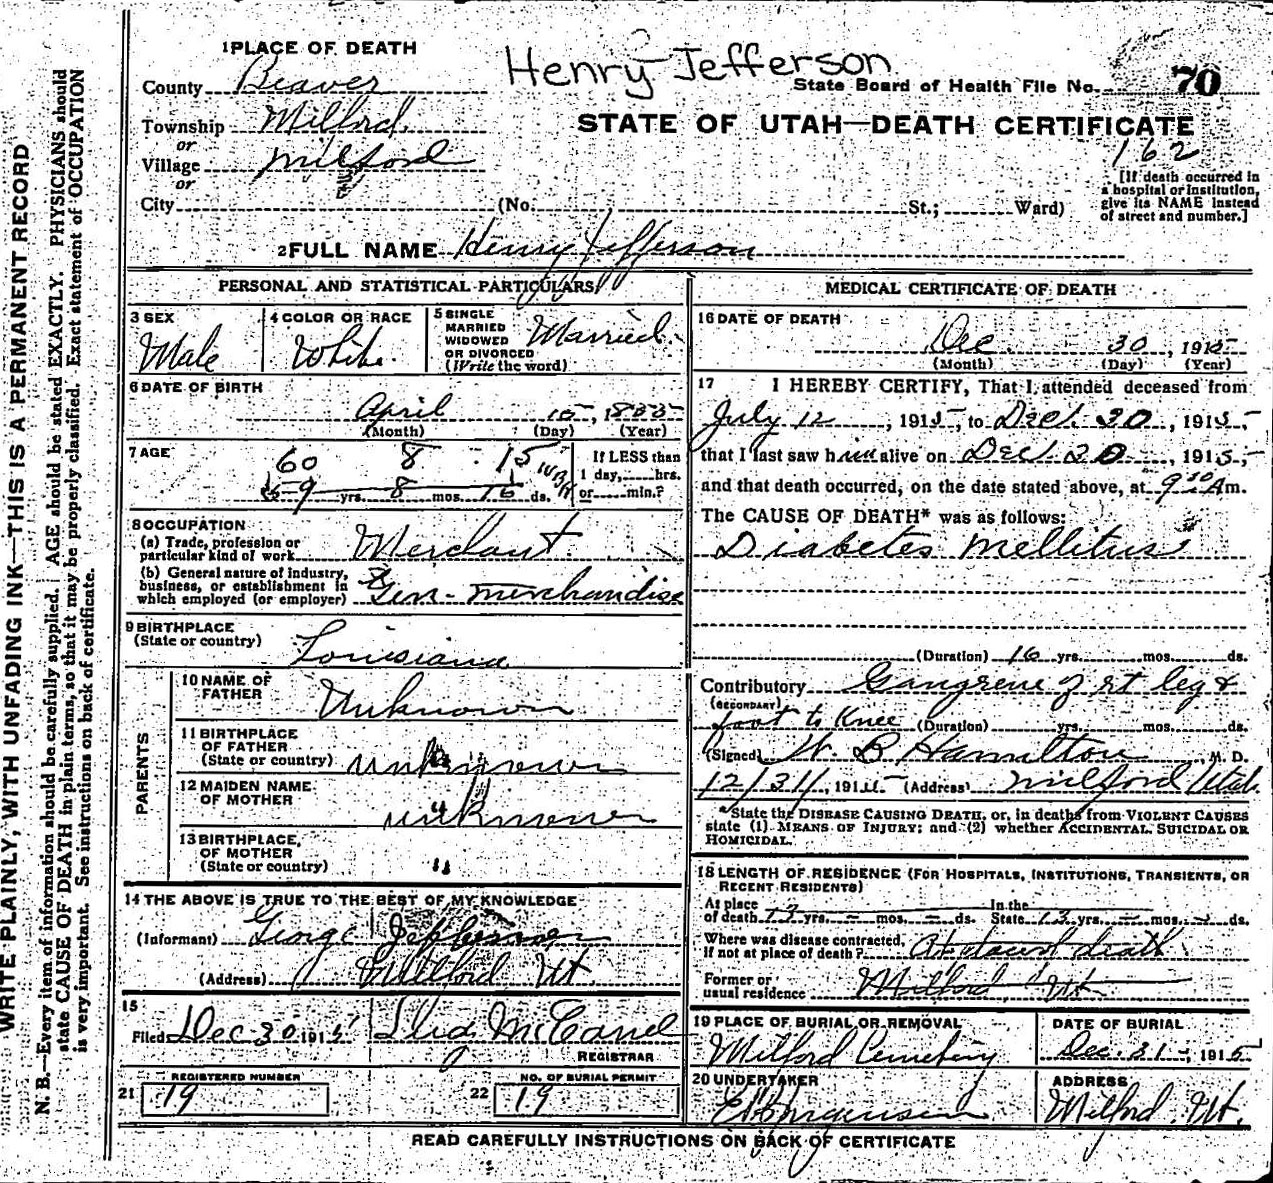 WRITE PLAINLY, WITH UNFADING INK—THIS IS A PERMANENT RECORD
N. B.—Every item of information should be carefully supplied. AGE should be stated EXACTLY. PHYSICIANS should
state CAUSE OF DEATH in plain terms, so that it may be properly classified. Exact statement of OCCUPATION
is very important. See instructions on back of certificate.
Henry Jefferson
1 PLACE OF DEATH
County Beaver
Township Milford
or
Village Milford
or
City (No. St.; Ward)
State Board of Health File No. 70
STATE OF UTAH—DEATH CERTIFICATE
162
[If death occurred in
a hospital or institution,
give its NAME instead
of street and number.]
2 FULL NAME Henry Jefferson
PERSONAL AND STATISTICAL PARTICULARS
3 SEX
Male
4 COLOR OR RACE
White
5 SINGLE
MARRIED
WIDOWED
OR DIVORCED
(Write the word)
Married
6 DATE OF BIRTH
April 15, 1855
(Month) (Day) (Year)
7 AGE
60 8 15 WBH
59 yrs. 8 mos. 16 ds.
If LESS than
1 day, hrs.
or min.?
8 OCCUPATION
(a) Trade, profession or
particular kind of work Merchant
(b) General nature of industry,
business, or establishment in
which employed (or employer) Gen. merchandise
9 BIRTHPLACE
(State or country) Louisiana
PARENTS
10 NAME OF
FATHER Unknown
11 BIRTHPLACE
OF FATHER
(State or country) unknown
12 MAIDEN NAME
OF MOTHER unknown
13 BIRTHPLACE
OF MOTHER
(State or country) "
14 THE ABOVE IS TRUE TO THE BEST OF MY KNOWLEDGE
(Informant) George Jefferson
(Address) Milford Ut
15
Filed Dec 30 1915 McGarrel
REGISTRAR
REGISTERED NUMBER
21 19
NO. OF BURIAL PERMIT
22 19
MEDICAL CERTIFICATE OF DEATH
16 DATE OF DEATH
Dec. 30, 1915
(Month) (Day) (Year)
17 I HEREBY CERTIFY, That I attended deceased from
July 12, 1915, to Dec. 30, 1915,
that I last saw him alive on Dec. 30, 1915,
and that death occurred, on the date stated above, at 9 30 Am.
The CAUSE OF DEATH* was as follows:
Diabetes Mellitus
(Duration) 16 yrs. mos. ds.
Contributory Gangrene of rt leg &
(SECONDARY)
foot to Knee (Duration) yrs. mos. ds.
(Signed) W. B. Hamilton, M. D.
12/31/, 1915 (Address) Milford Utah
*State the DISEASE CAUSING DEATH, or, in deaths from VIOLENT CAUSES
state (1) MEANS OF INJURY; and (2) whether ACCIDENTAL, SUICIDAL OR
HOMICIDAL.
18 LENGTH OF RESIDENCE (FOR HOSPITALS, INSTITUTIONS, TRANSIENTS, OR
RECENT RESIDENTS)
At place In the
of death 13 yrs. – mos. – ds. State 13 yrs. – mos. – ds.
Where was disease contracted,
if not at place of death? At place of death
Former or
usual residence Milford Ut
19 PLACE OF BURIAL OR REMOVAL
Milford Cemetery
DATE OF BURIAL
Dec. 31, 1915
20 UNDERTAKER
ADDRESS
Milford Ut.
READ CAREFULLY INSTRUCTIONS ON BACK OF CERTIFICATE